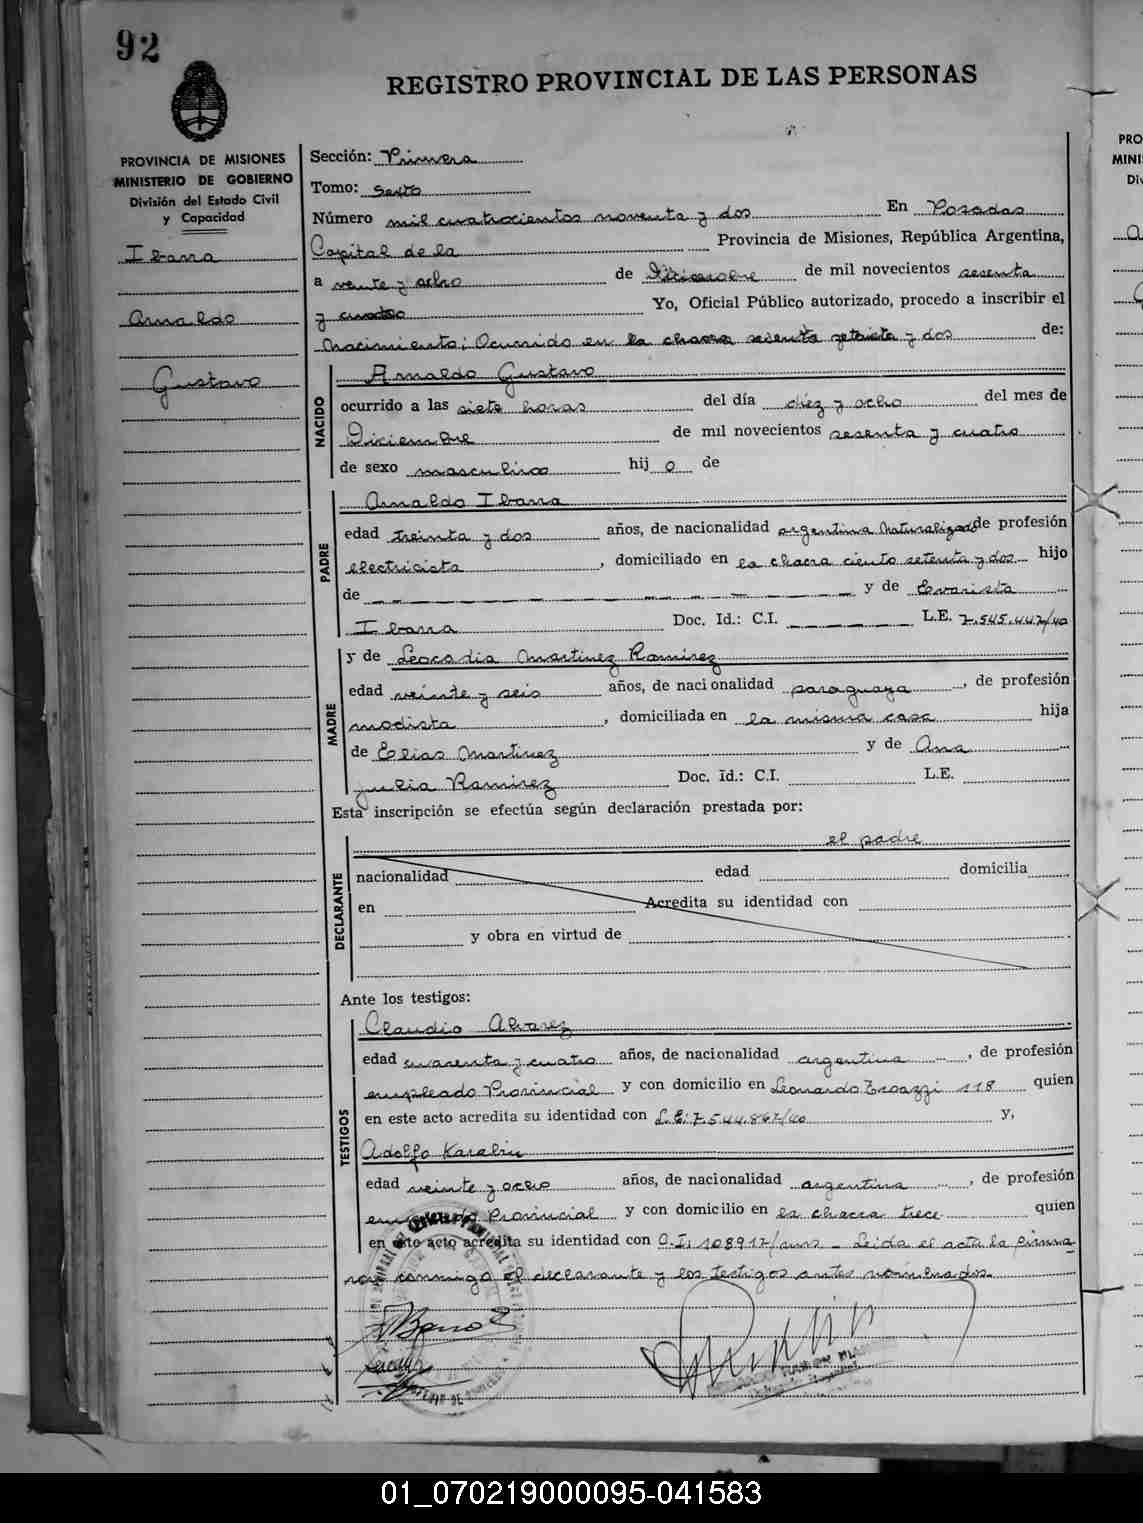 92
REGISTRO PROVINCIAL DE LAS PERSONAS
PROVINCIA DE MISIONES
MINISTERIO DE GOBIERNO
División del Estado Civil
y Capacidad
Ibarra
Arnaldo
Gustavo
Sección: Primera
Tomo: Sexto
Número mil cuatrocientos noventa y dos En Posadas
Capital de la Provincia de Misiones, República Argentina,
a veinte y ocho de Diciembre de mil novecientos sesenta
y cuatro Yo, Oficial Público autorizado, procedo a inscribir el
Nacimiento; Ocurrido en la chacra setenta y dos de:
NACIDO
Arnaldo Gustavo
ocurrido a las siete horas del día diez y ocho del mes de
Diciembre de mil novecientos sesenta y cuatro
de sexo masculino hij o de
PADRE
Arnaldo Ibarra
edad treinta y dos años, de nacionalidad argentina Naturalizado de profesión
electricista, domiciliado en la chacra ciento setenta y dos hijo
de y de Evarista
Ibarra Doc. Id.: C.I. L.E. 7.545.447/40
MADRE
y de Leocadia Martinez Ramirez
edad veinte y seis años, de nacionalidad paraguaya, de profesión
modista, domiciliada en la misma casa hija
de Elias Martinez y de Ana
Julia Ramirez Doc. Id.: C.I. L.E.
Esta inscripción se efectúa según declaración prestada por:
DECLARANTE
el padre
nacionalidad edad domicilia
en Acredita su identidad con
y obra en virtud de
Ante los testigos:
TESTIGOS
Claudio Alvarez
edad cuarenta y cuatro años, de nacionalidad argentina, de profesión
empleado Provincial y con domicilio en Leonardo Troazzi 118 quien
en este acto acredita su identidad con L.E. 7.544.867/40 y,
Adolfo
edad veinte y ocho años, de nacionalidad argentina, de profesión
empleado Provincial y con domicilio en la chacra trece quien
en este acto acredita su identidad con C.I. 108917/ Leida el acta la firma
conmigo el declarante y los testigos antes nombrados.
01_070219000095-041583